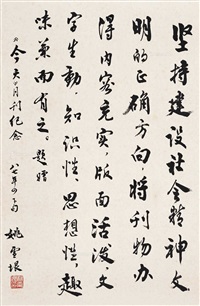 坚持建设社会精神文
明的正确方向，将刊物办
得内容充实，版面活泼文
字生动，知识性、思想性、趣
味兼而有之。题赠
《今天》月刊纪念
八七年
姚雪垠